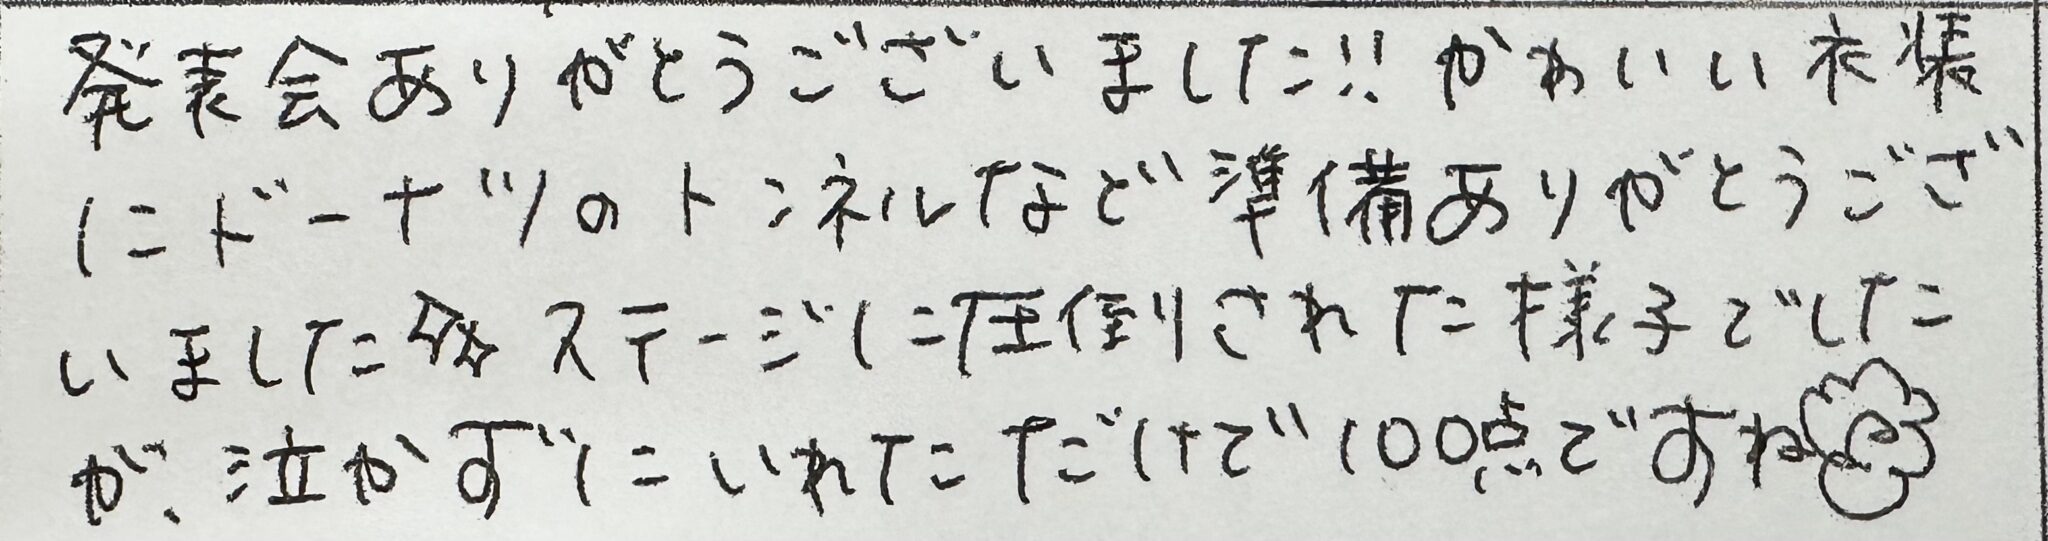 発表会ありがとうございました!! かわいい衣装
にドーナツのトンネルなど準備ありがとうござ
いました ステージに圧倒された様子でした
が、泣かずにいれただけで100点ですね